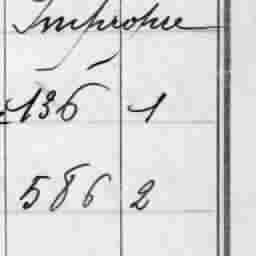 Impropre
136 1
586 2